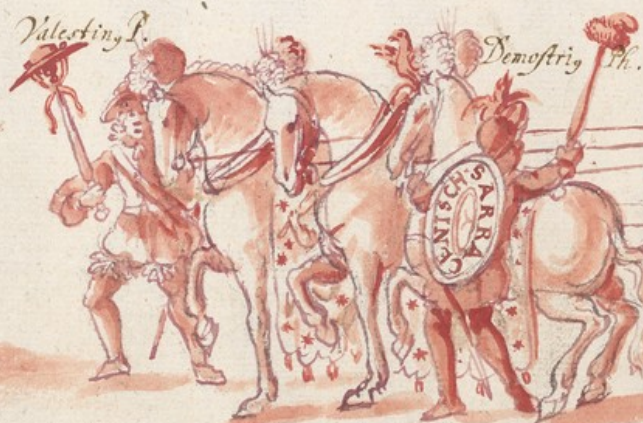 Valestinꝯ P.
Demostriꝯ Ph.
SARRA
CENISCH